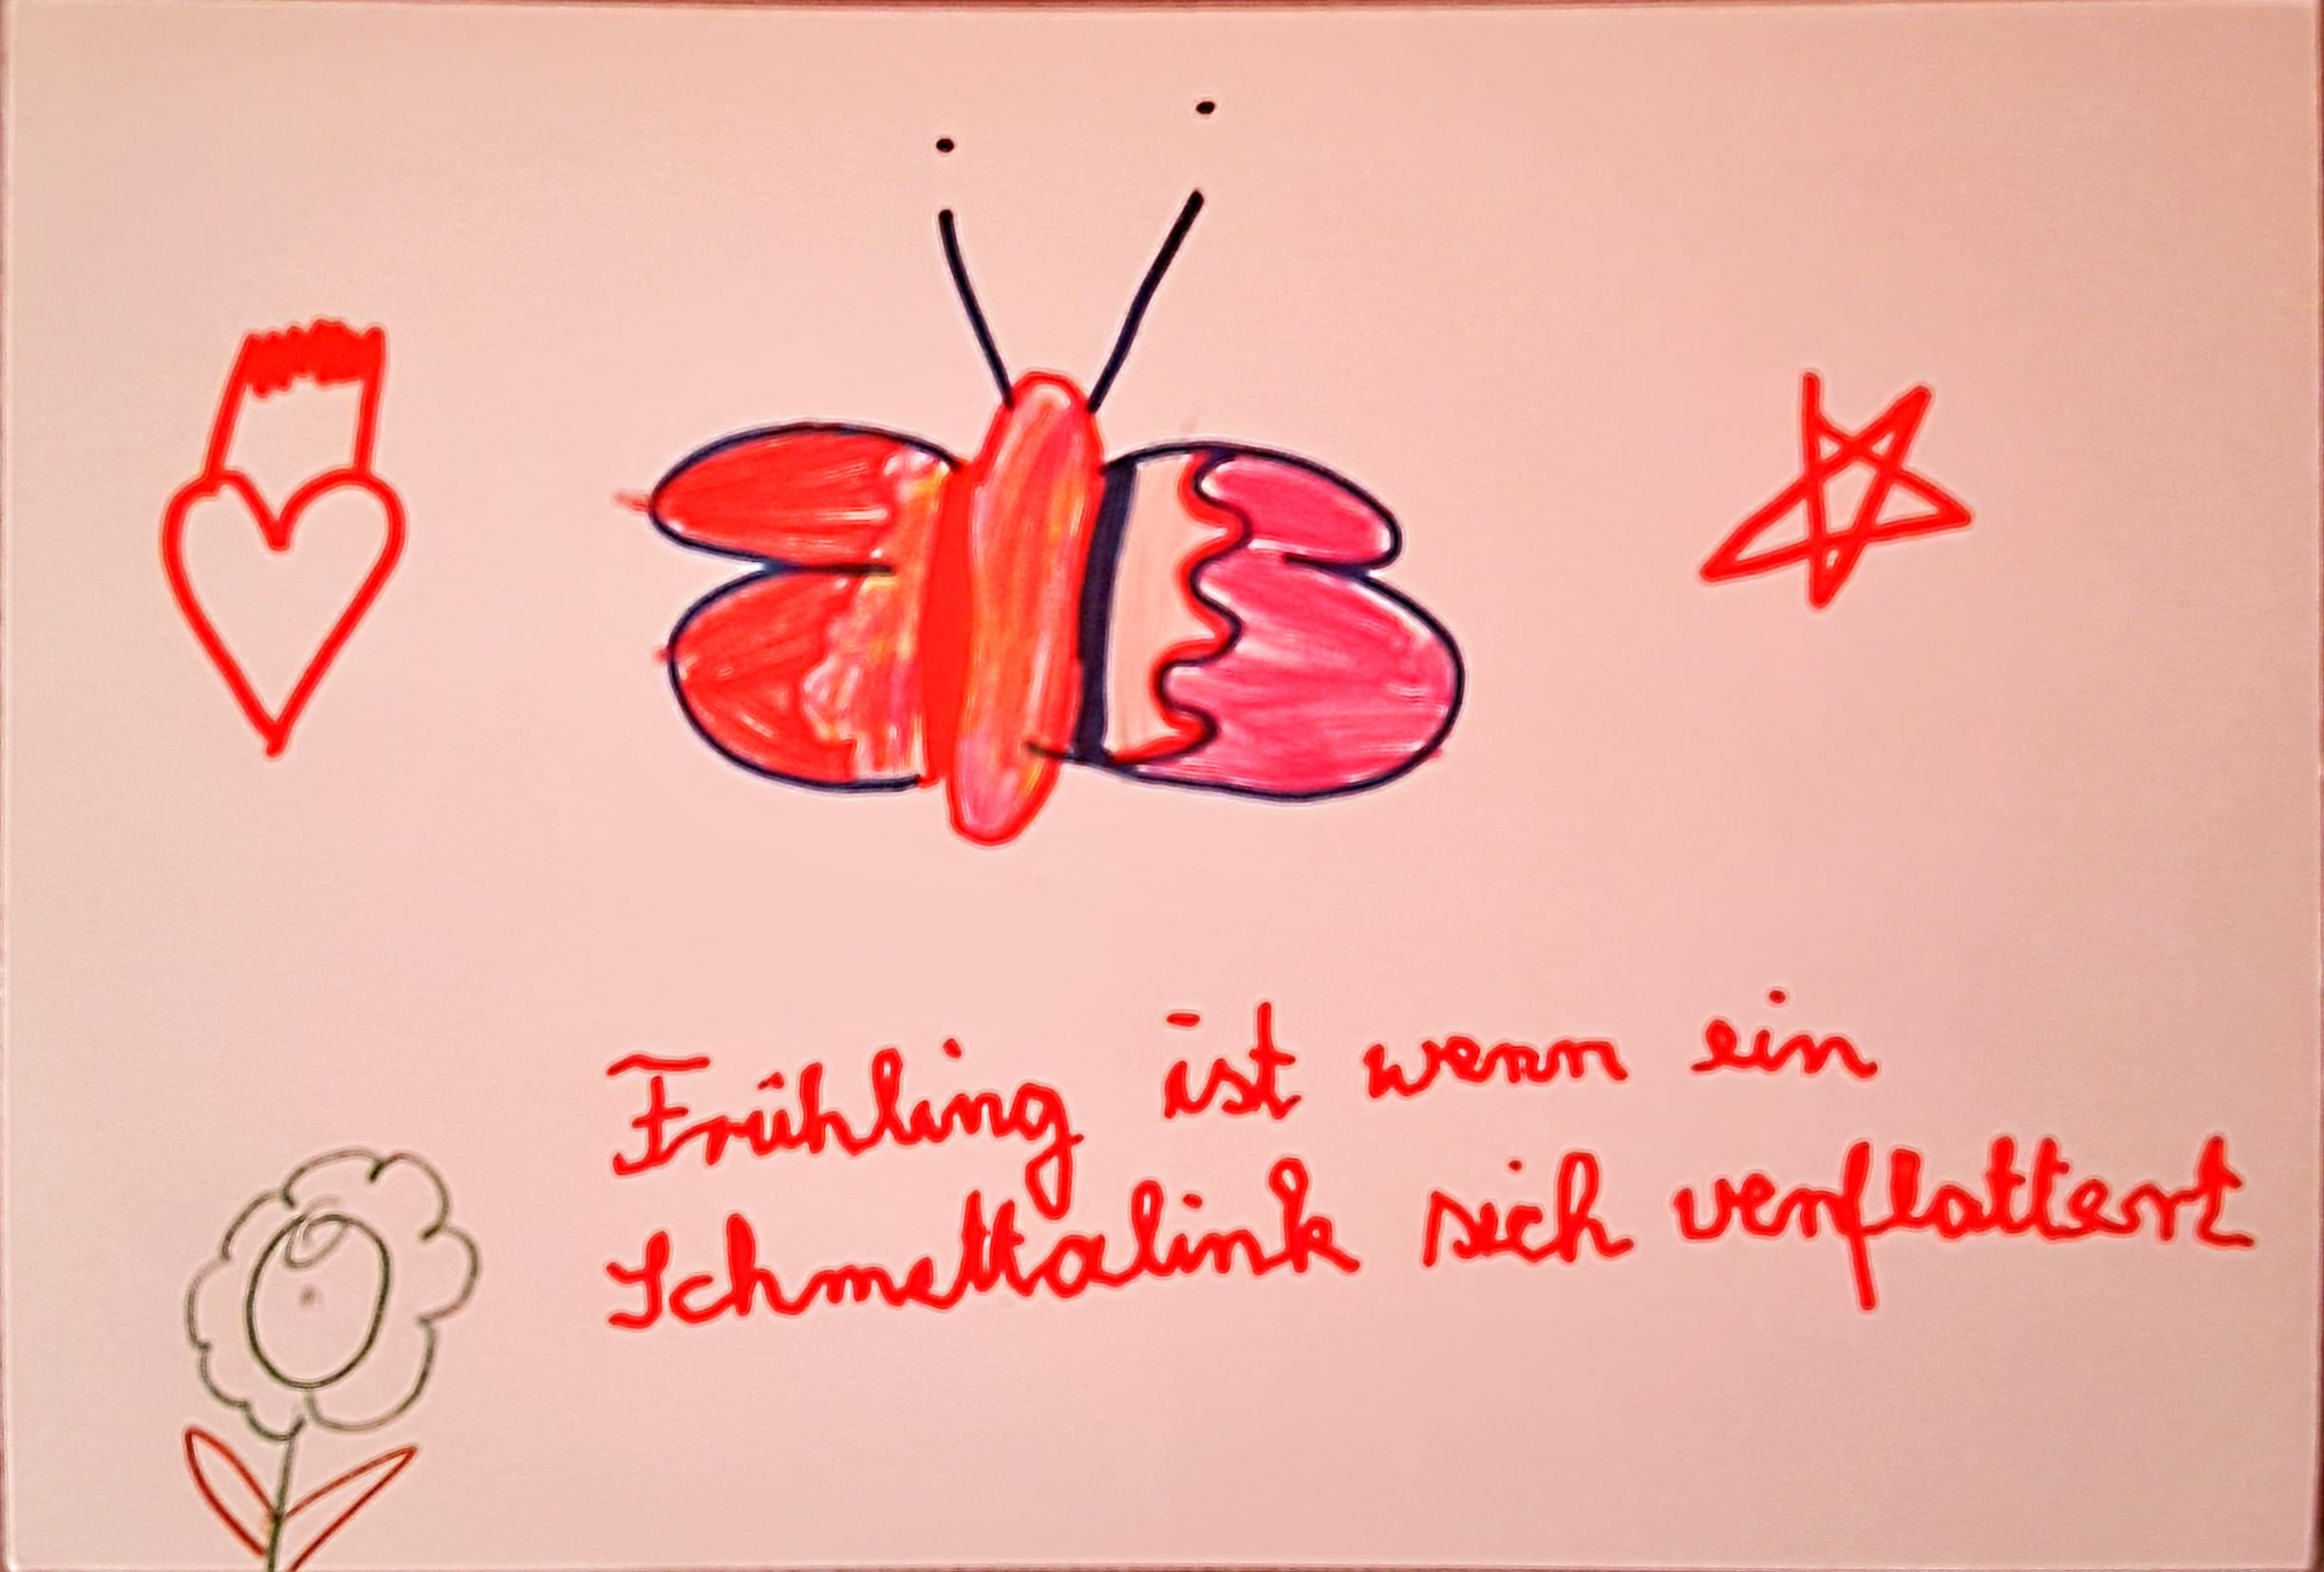 Frühling ist wenn ein
Schmettalink sich verflattert